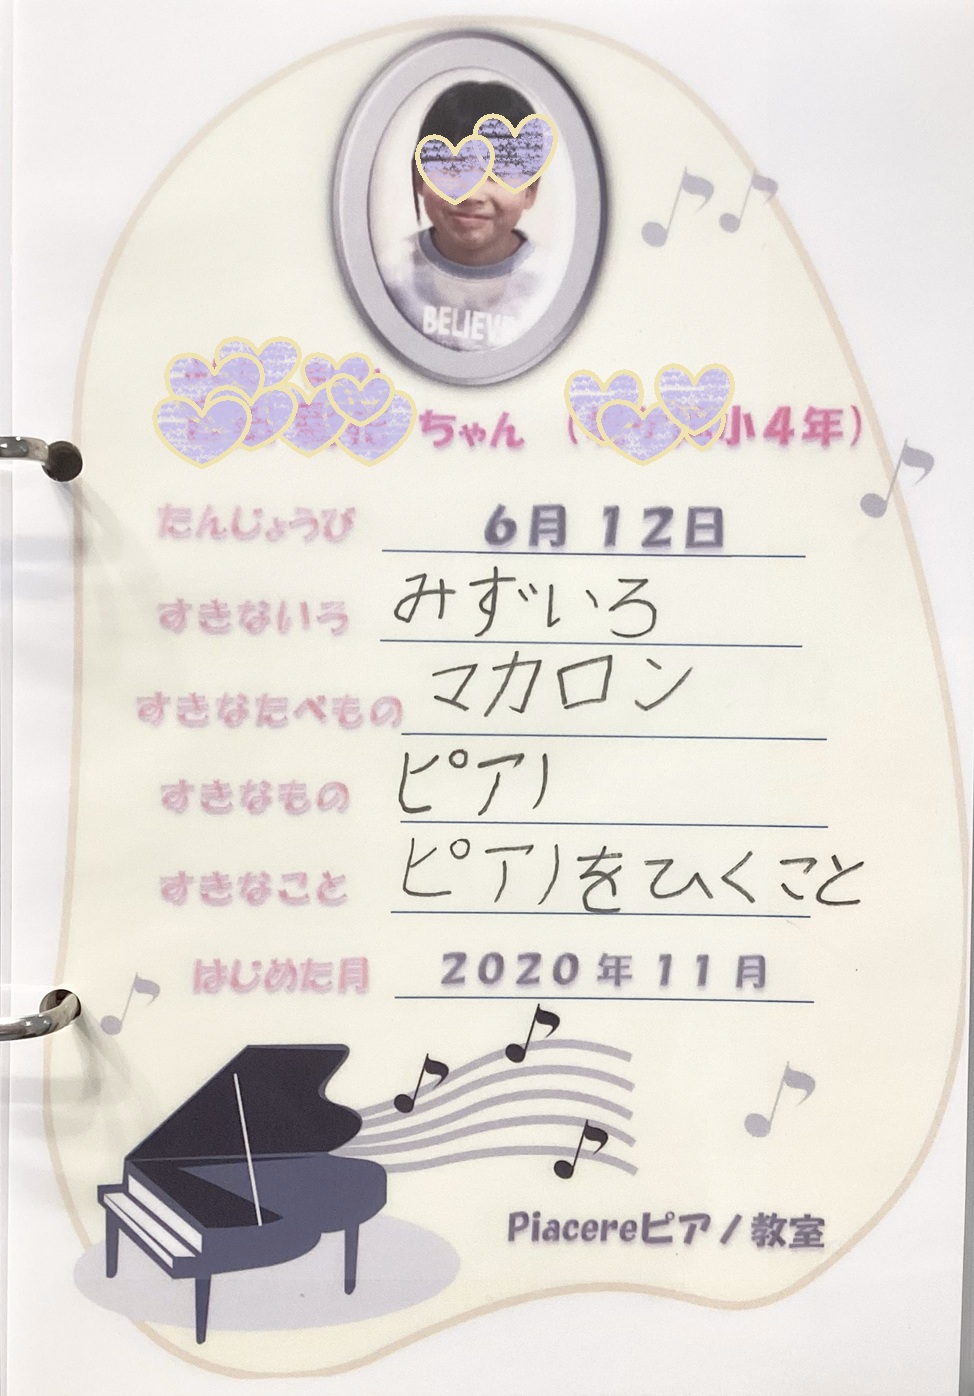 BELIEVE
ちゃん （ 小４年）
たんじょうび 6月 12日
すきないろ みずいろ
すきなたべもの マカロン
すきなもの ピアノ
すきなこと ピアノをひくこと
はじめた月 2020年 11月
Piacereピアノ教室